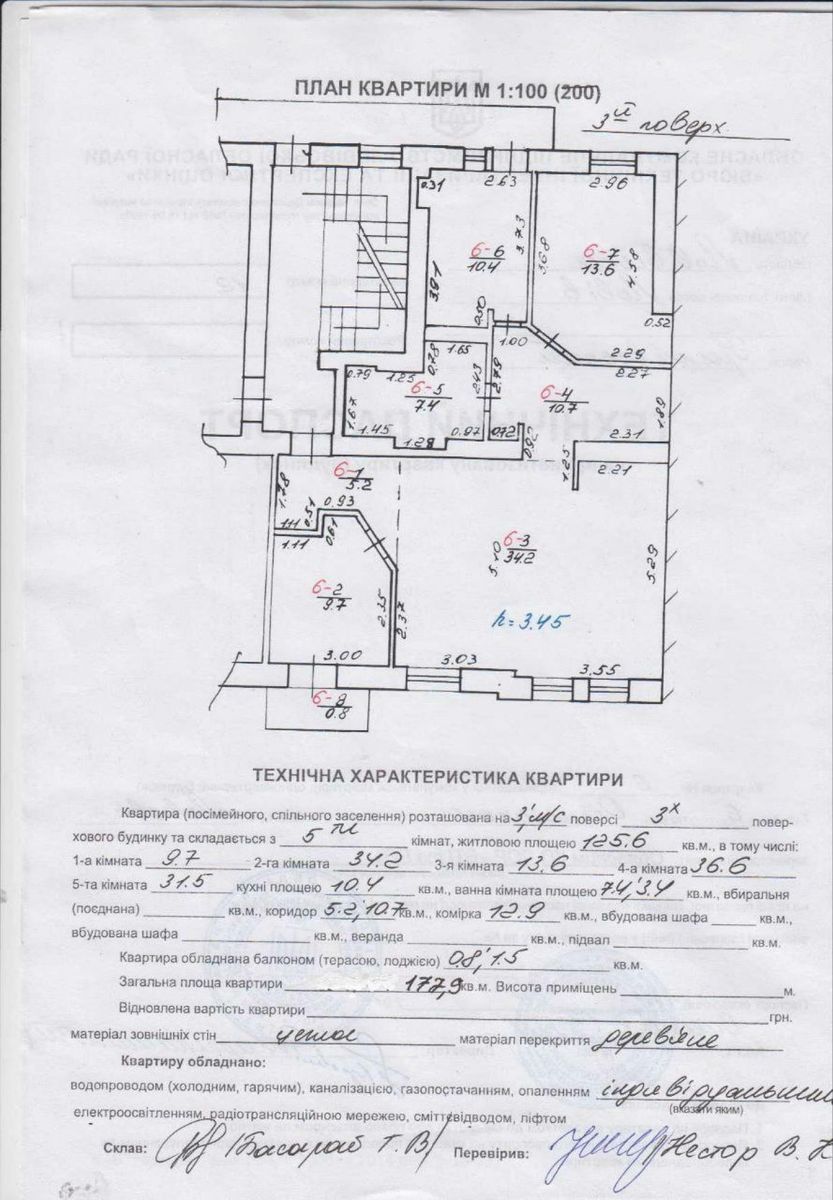 ПЛАН КВАРТИРИ М 1:100 (200)
3й поверх.
0.31 2.63 2.96
3.73 3.68
6-6 10.4
6-7 13.6
4.58
3.91
0.50
0.52
1.00
1.65
2.29
2.27
0.79 1.25 0.78 2.43 2.79
6-5 7.4
6-4 10.7
1.89
1.67
1.45 1.28 0.97 0.12 0.92 2.31
6-1 5.2
1.25 2.21
1.78
0.51 0.93
1.11
1.11 0.61
6-3 34.2
5.10
5.29
6-2 9.7
2.35 2.37
h=3.45
3.00 3.03 3.55
6-8 0.8
ТЕХНІЧНА ХАРАКТЕРИСТИКА КВАРТИРИ
Квартира (посімейного, спільного заселення) розташована на 3,м/с поверсі 3х повер-
хового будинку та складається з 5ти кімнат, житловою площею 125.6 кв.м., в тому числі:
1-а кімната 9.7 2-га кімната 34.2 3-я кімната 13.6 4-а кімната 36.6
5-та кімната 31.5 кухні площею 10.4 кв.м., ванна кімната площею 7.4, 3.4 кв.м., вбиральня
(поєднана) кв.м., коридор 5.2, 10.7 кв.м., комірка 12.9 кв.м., вбудована шафа кв.м.,
вбудована шафа кв.м., веранда кв.м., підвал кв.м.
Квартира обладнана балконом (терасою, лоджією) 0.8, 1.5 кв.м.
Загальна площа квартири 177,9 кв.м. Висота приміщень м.
Відновлена вартість квартири грн.
матеріал зовнішніх стін цегла матеріал перекриття дерев'яне
Квартиру обладнано:
водопроводом (холодним, гарячим), каналізацією, газопостачанням, опаленням індивідуальним
(вказати яким)
електроосвітленням, радіотрансляційною мережею, сміттєвідводом, ліфтом
Склав: Басараб Т. В. Перевірив: Нестор В.